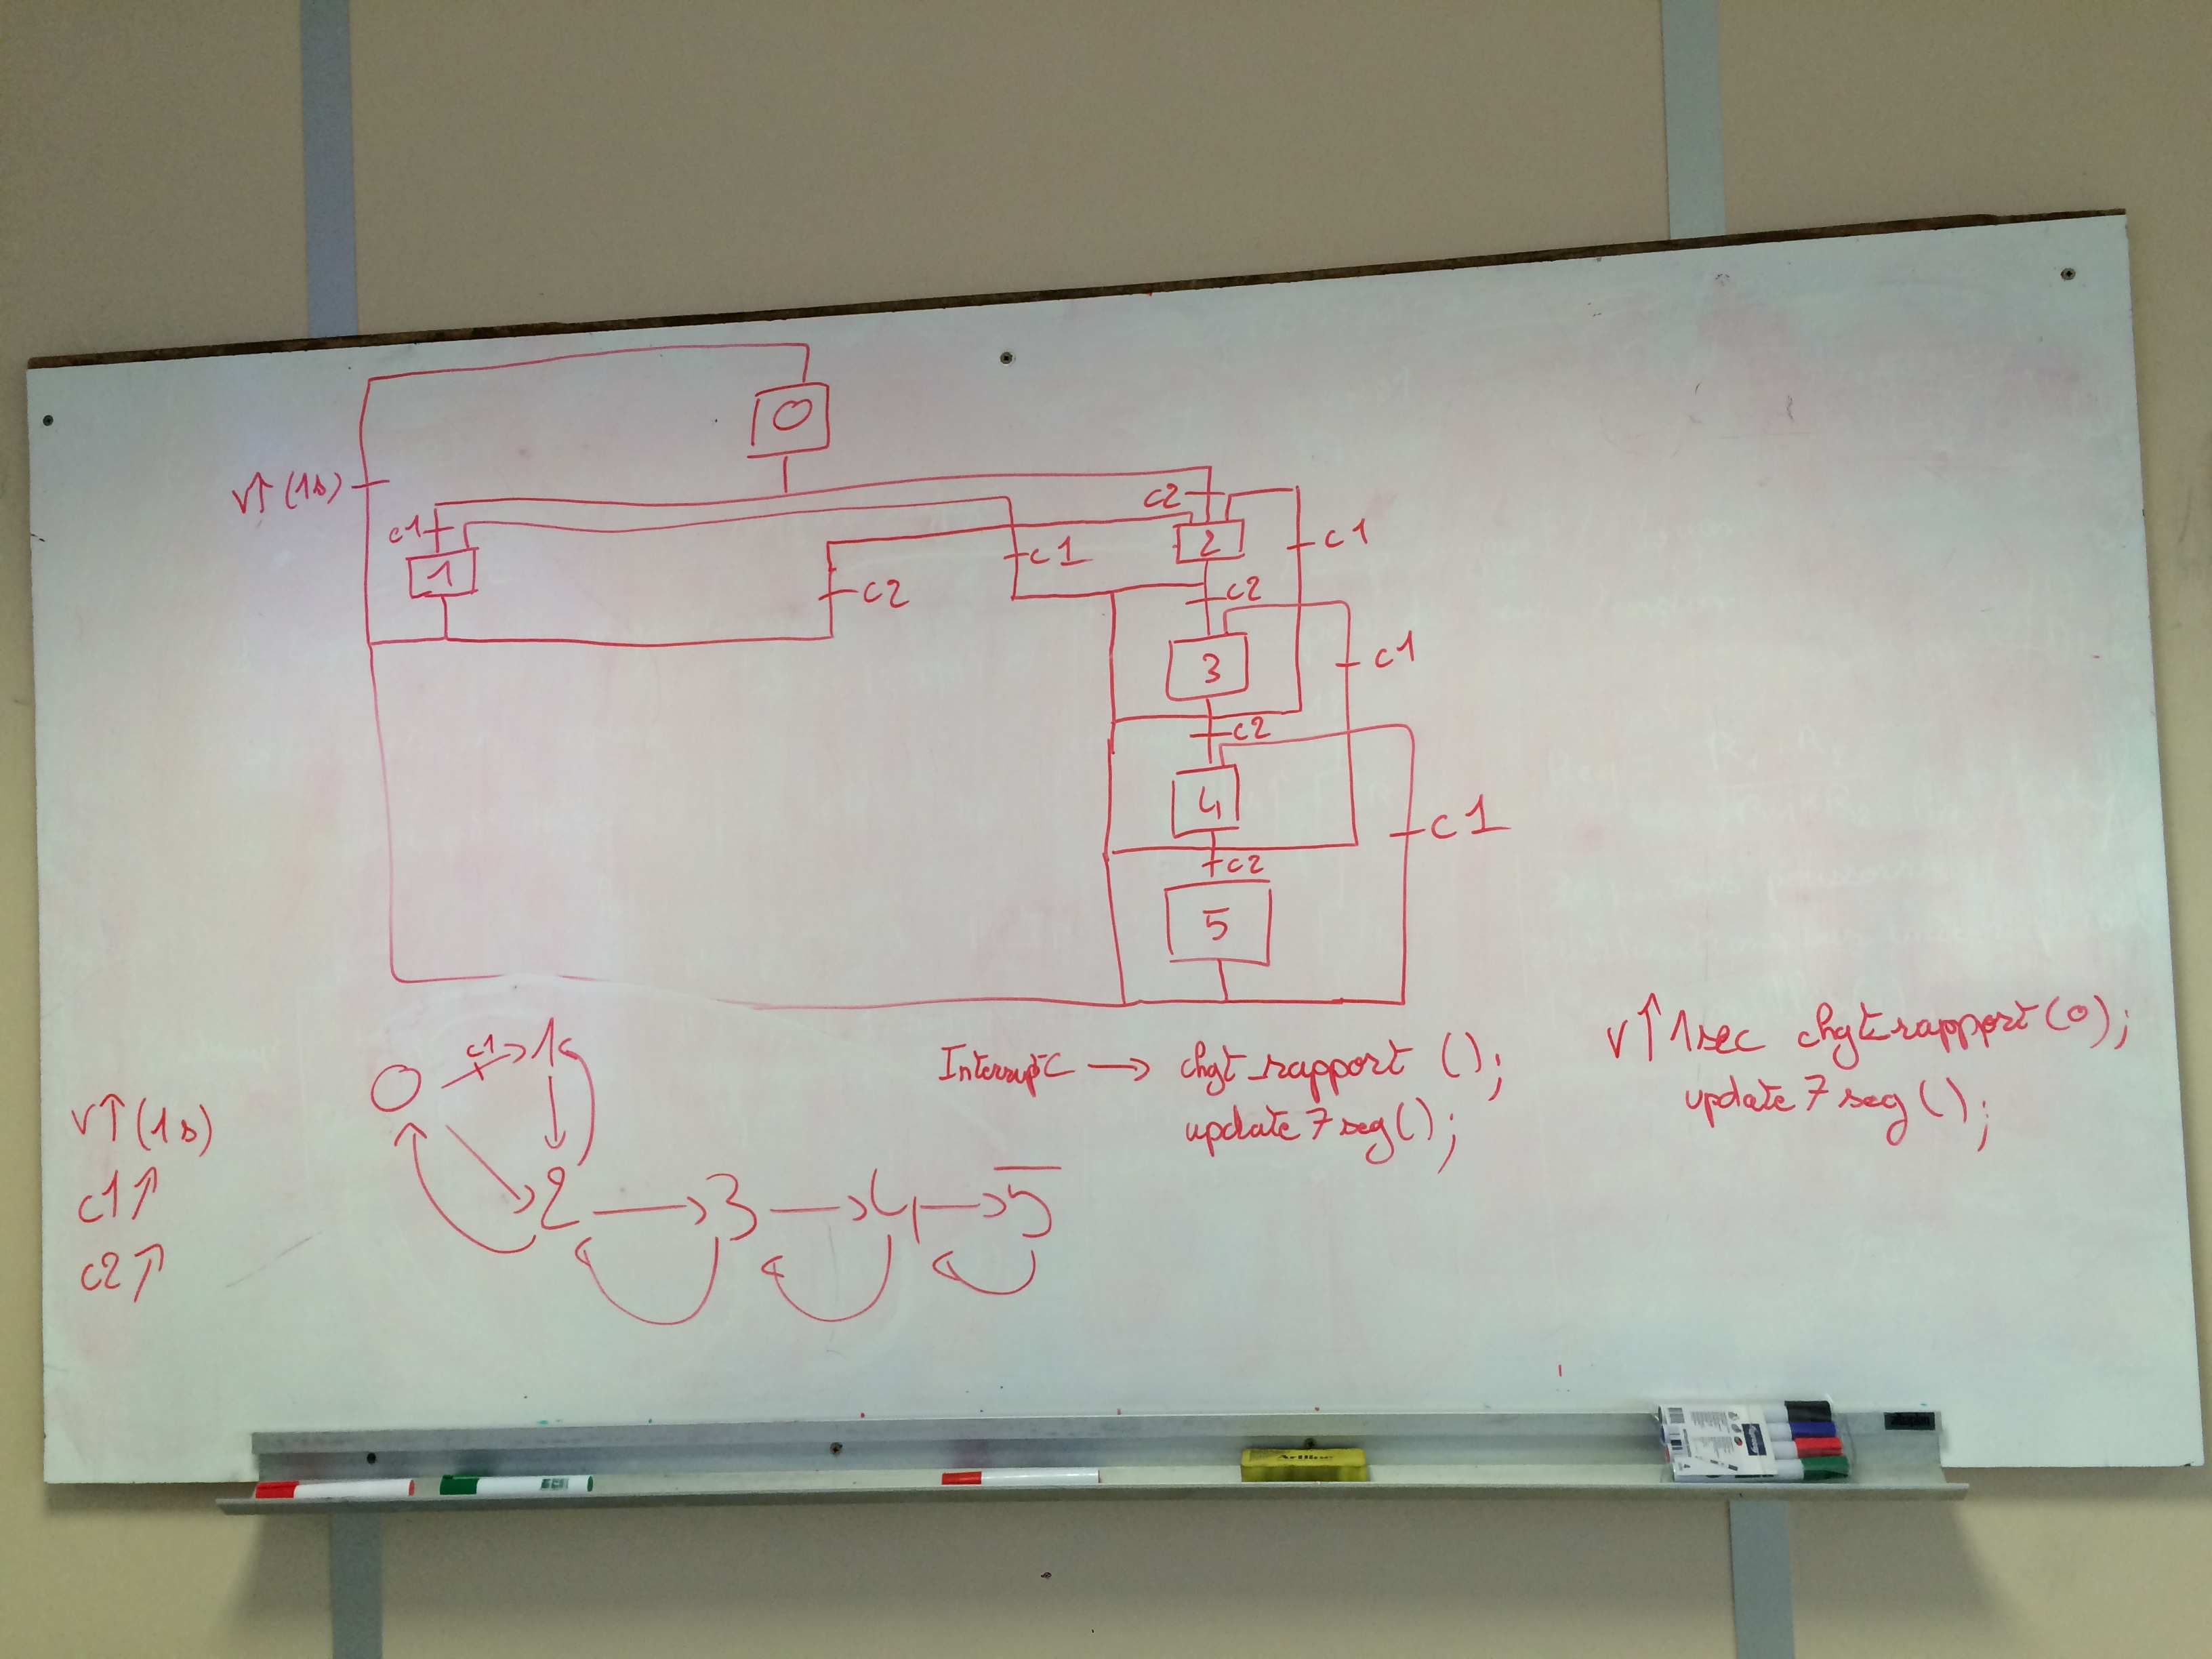 0
v↑ (1s)
c2
c1
c1
1
2
c1
c2
c1
c2
3
c1
c2
4
c1
c2
5
c1
0
1
v↑ (1s)
c1↑
c2↑
2 → 3 → 4 → 5
Interrupt C → chgt_rapport ();
update 7 seg ();
v↑ 1sec chgt rapport (0);
update 7 seg ();
Artline